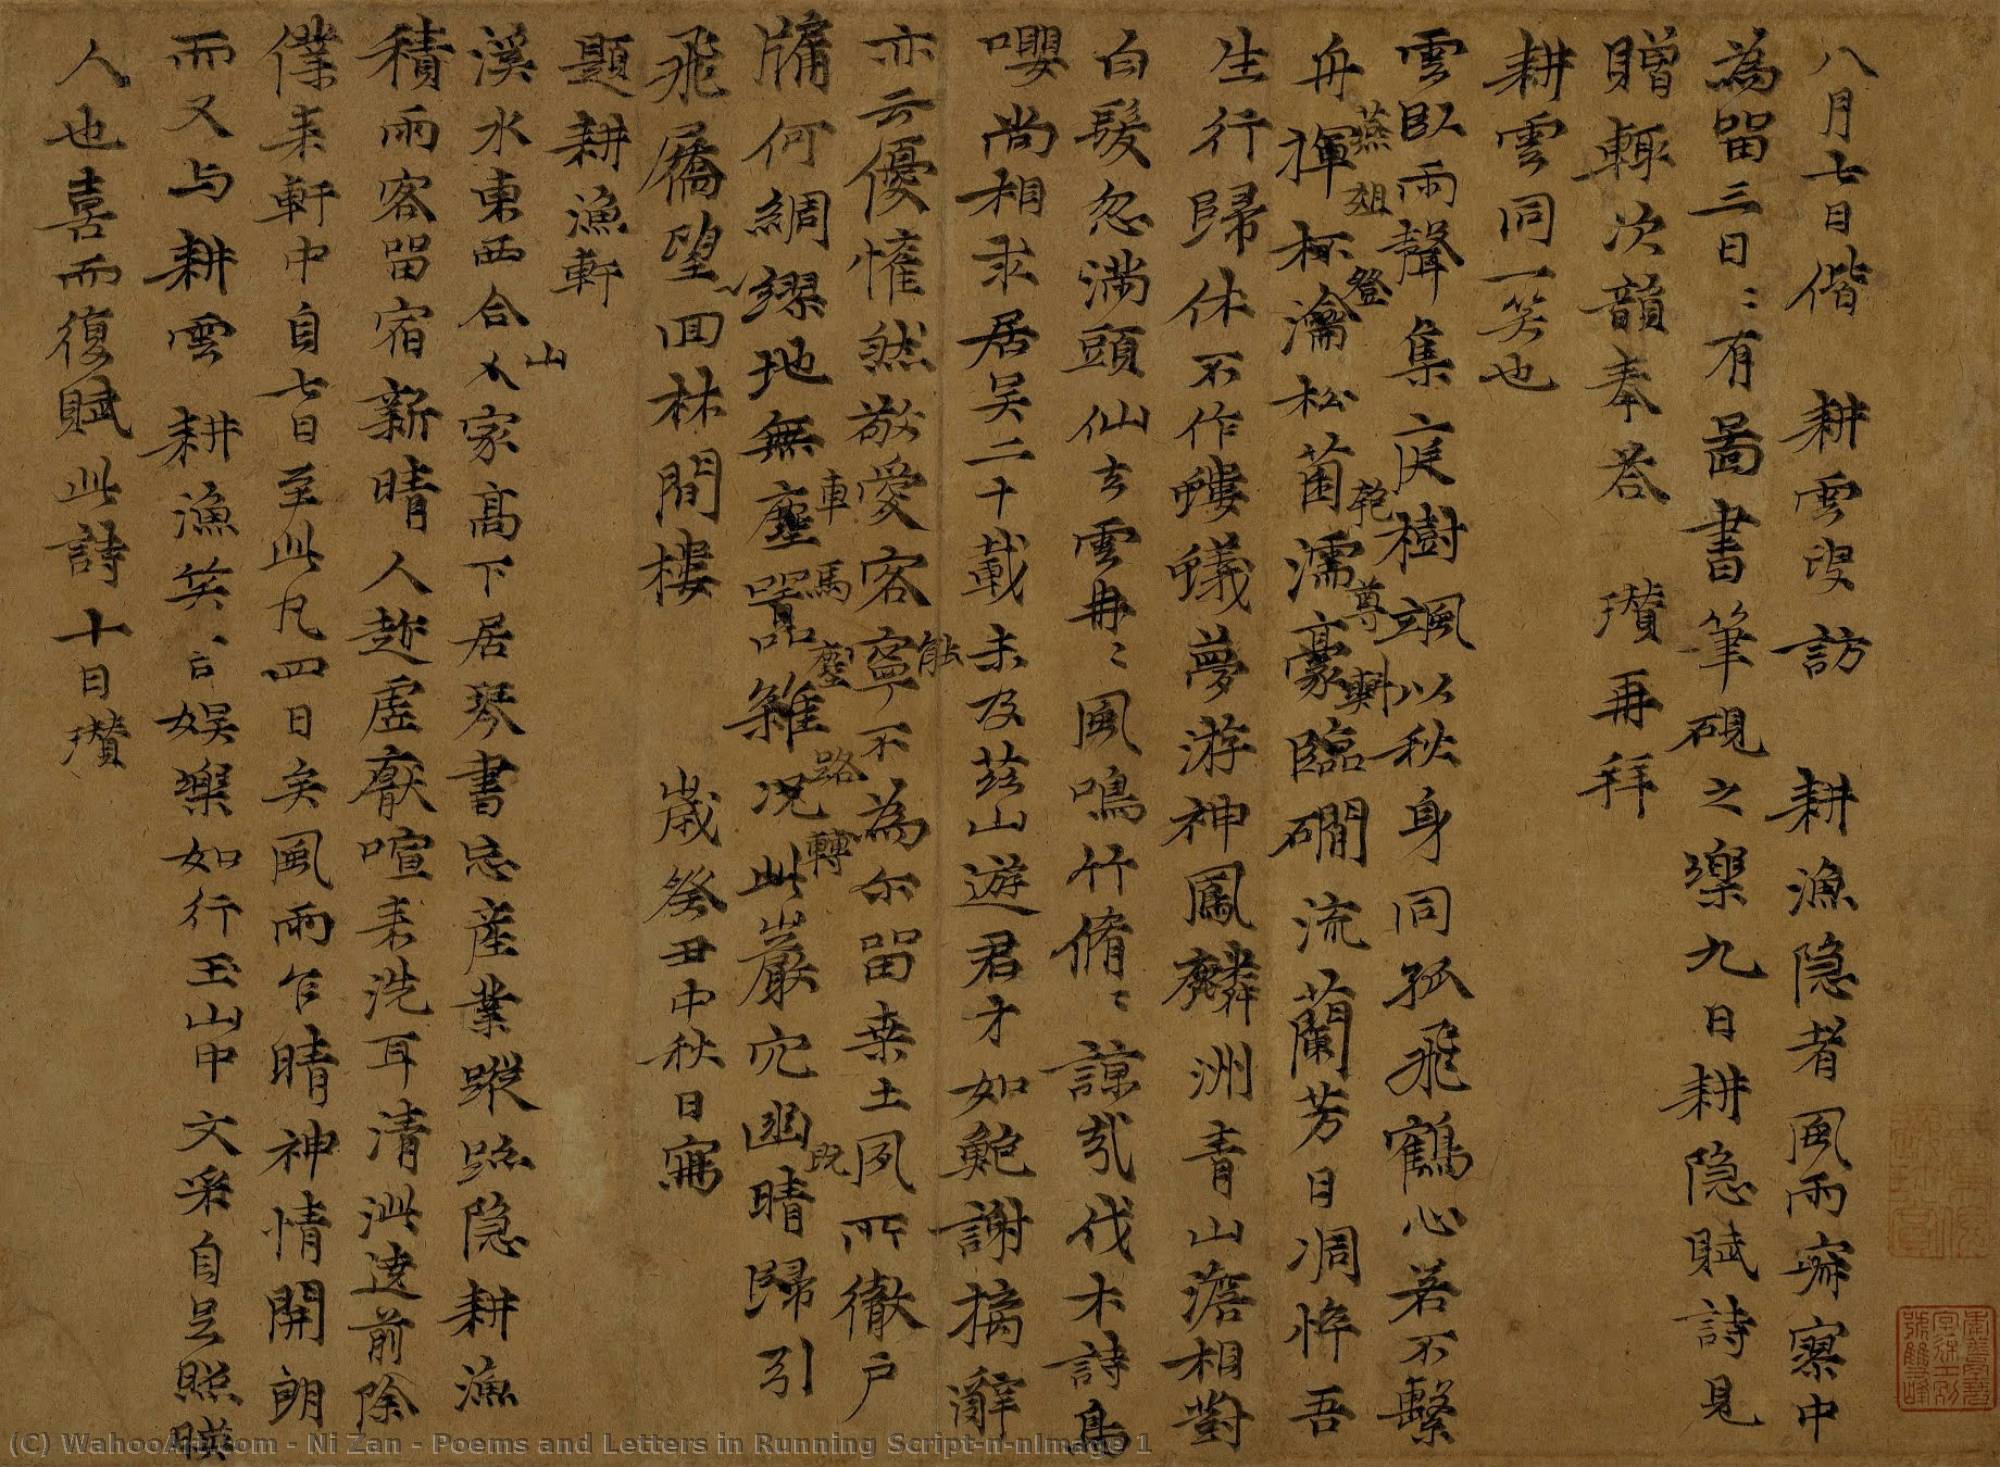 八月七日偕 耕雲叟訪 耕漁隐者風雨寂寥中
為留三日〻有圖書筆硯之樂九日耕隐賦詩見
贈輙次韻奉荅 瓚再拜
耕雲同一笑也
雲臥雨聲集庭樹颯以秋身同孤飛鶴心若不繫
舟揮杯瀹松菌濡豪臨磵流蘭芳日凋悴吾
生行歸休不作螻蟻夢游神鳳麟洲青山澹相對
白髮忽滿頭仙去雲冉〻風鳴竹脩〻諒哉伐木詩鳥
嚶尚相求居吴二十載未及茲山遊君才如鮑謝摛辭
亦云優惟然敬愛客寧不為尔留桑土夙所徹户
牖何綢繆地無塵嚣雜况此巖穴幽晴歸引
飛屩望〻回林間樓 歲癸丑中秋日寫
題耕漁軒
溪水東西合山家高下居琴書忘產業蹤跡隐耕漁
積雨客留宿新晴人趂虚厭喧來洗耳清泚遶前除
僕来軒中自七日至此凡四日矣風雨乍晴神情開朗
而又与耕雲 耕漁笑言娱樂如行玉山中文采自足照暎
人也喜而復賦此詩十日瓚
山
能
車馬
路轉
既
(C) WahooArt.com - Ni Zan - Poems and Letters in Running Script-n-nImage 1